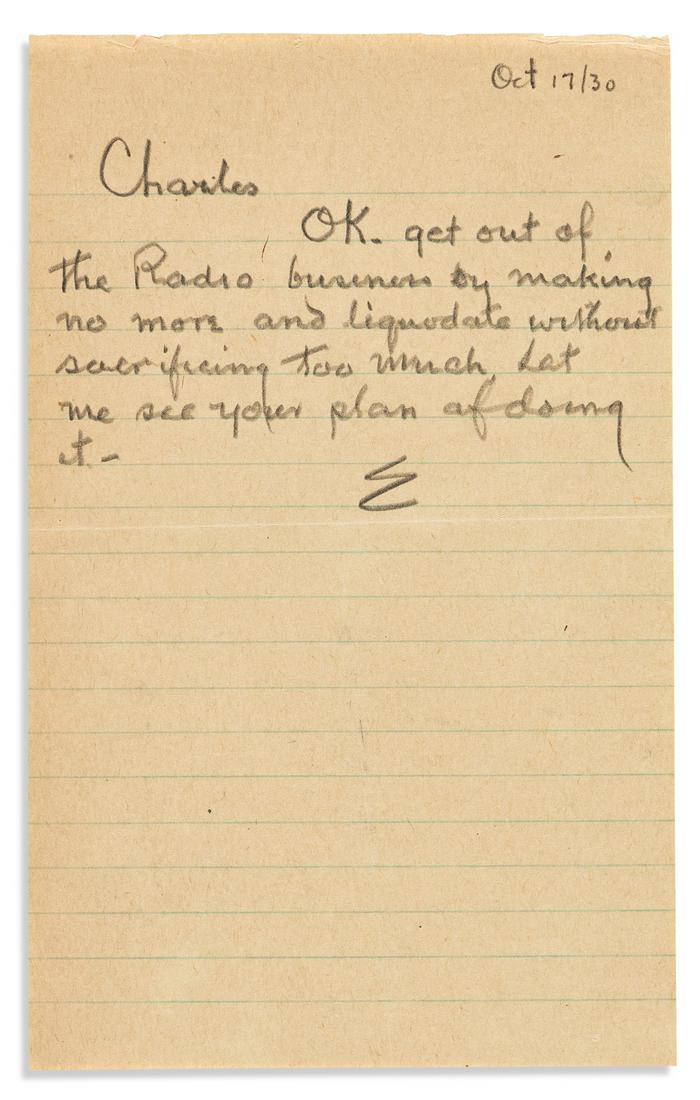 Oct 17/30
Charles
OK. get out of
the Radio business by making
no more and liquodate without
sacrificing too much Let
me see your plan of doing
it-
E